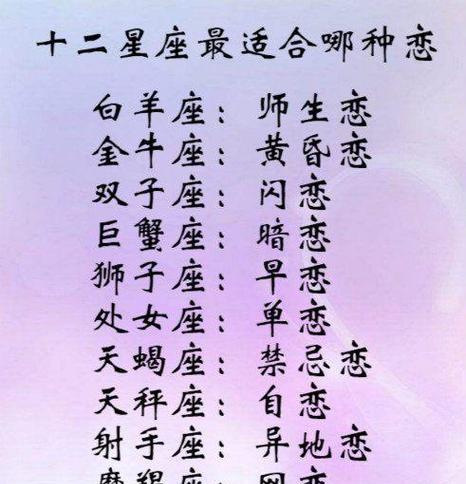 十二星座最适合哪种恋
白羊座：师生恋
金牛座：黄昏恋
双子座：闪恋
巨蟹座：暗恋
狮子座：早恋
处女座：单恋
天蝎座：禁忌恋
天秤座：自恋
射手座：异地恋
摩羯座：网恋